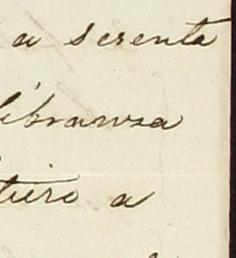 a serenta
libranza
tiero a